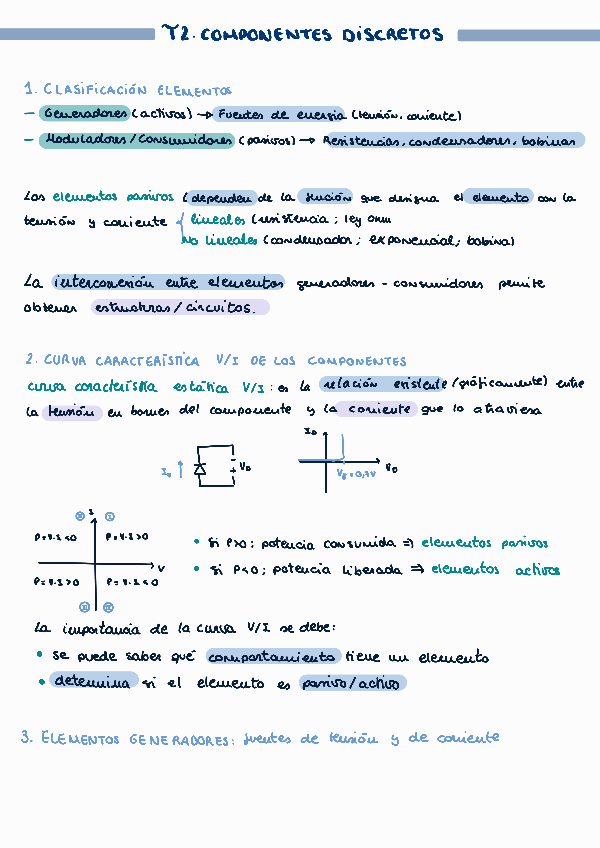 T2. COMPONENTES DISCRETOS
1. CLASIFICACIÓN ELEMENTOS
— Generadores (activos) → Fuentes de energía (tensión, corriente)
— Moduladores/Consumidores (pasivos) → Resistencias, condensadores, bobinas
Los elementos pasivos (dependen de la función que designa el elemento con la
tensión y corriente lineales (resistencia; ley ohm
No lineales (condensador; exponencial; bobina)
La interconexión entre elementos generadores - consumidores permite
obtener estructuras/circuitos.
2. CURVA CARACTERÍSTICA V/I DE LOS COMPONENTES
curva característica estática V/I: es la relación existente (gráficamente) entre
la tensión en bornes del componente y la corriente que lo atraviesa
I_D V_D
I_D V_D
V_F = 0,7V
I
P=V·I<0 P=V·I>0
V
P=V·I>0 P=V·I<0
• Si P>0; potencia consumida ⇒ elementos pasivos
• Si P<0; potencia liberada ⇒ elementos activos
La importancia de la curva V/I se debe:
• se puede saber qué comportamiento tiene un elemento
• determina si el elemento es pasivo/activo
3. ELEMENTOS GENERADORES: fuentes de tensión y de corriente